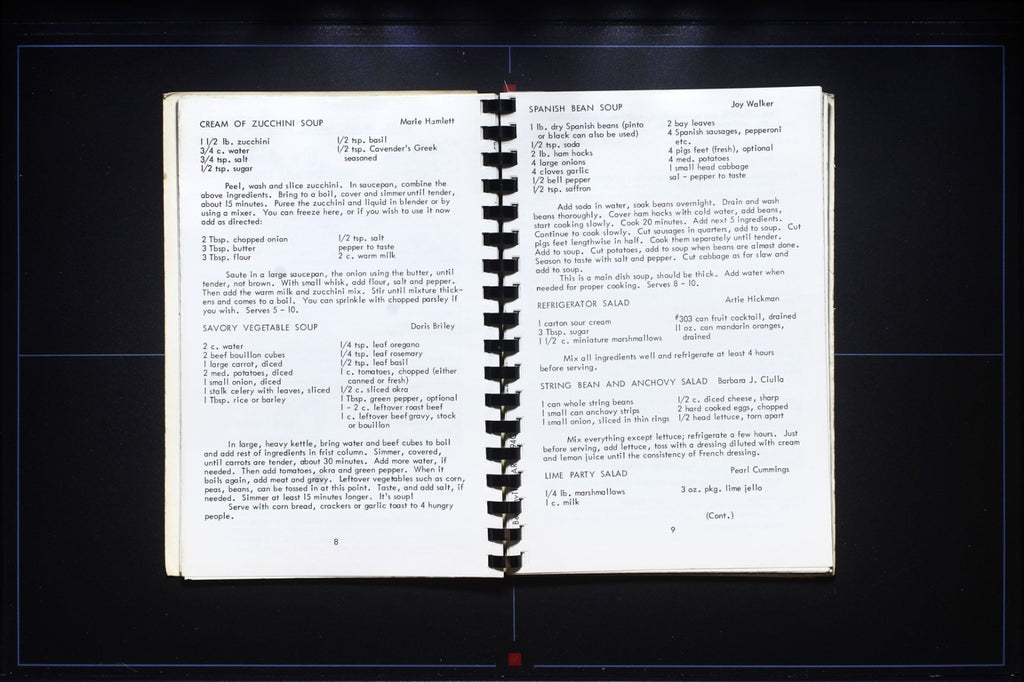 CREAM OF ZUCCHINI SOUP Marie Hamlett
1 1/2 lb. zucchini 1/2 tsp. basil
3/4 c. water 1/2 tsp. Cavender's Greek
3/4 tsp. salt seasoned
1/2 tsp. sugar
Peel, wash and slice zucchini. In saucepan, combine the
above ingredients. Bring to a boil, cover and simmer until tender,
about 15 minutes. Puree the zucchini and liquid in blender or by
using a mixer. You can freeze here, or if you wish to use it now
add as directed:
2 Tbsp. chopped onion 1/2 tsp. salt
3 Tbsp. butter pepper to taste
3 Tbsp. flour 2 c. warm milk
Saute in a large saucepan, the onion using the butter, until
tender, not brown. With small whisk, add flour, salt and pepper.
Then add the warm milk and zucchini mix. Stir until mixture thick-
ens and comes to a boil. You can sprinkle with chopped parsley if
you wish. Serves 5 - 10.
SAVORY VEGETABLE SOUP Doris Briley
2 c. water 1/4 tsp. leaf oregano
2 beef bouillon cubes 1/4 tsp. leaf rosemary
1 large carrot, diced 1/2 tsp. leaf basil
2 med. potatoes, diced 1 c. tomatoes, chopped (either
1 small onion, diced canned or fresh)
1 stalk celery with leaves, sliced 1/2 c. sliced okra
1 Tbsp. rice or barley 1 Tbsp. green pepper, optional
1 - 2 c. leftover roast beef
1 c. leftover beef gravy, stock
or bouillon
In large, heavy kettle, bring water and beef cubes to boil
and add rest of ingredients in frist column. Simmer, covered,
until carrots are tender, about 30 minutes. Add more water, if
needed. Then add tomatoes, okra and green pepper. When it
boils again, add meat and gravy. Leftover vegetables such as corn,
peas, beans, can be tossed in at this point. Taste, and add salt, if
needed. Simmer at least 15 minutes longer. It's soup!
Serve with corn bread, crackers or garlic toast to 4 hungry
people.
8
SPANISH BEAN SOUP Joy Walker
1 lb. dry Spanish beans (pinto 2 bay leaves
or black can also be used) 4 Spanish sausages, pepperoni
1/2 tsp. soda etc.
2 lb. ham hocks 4 pigs feet (fresh), optional
4 large onions 4 med. potatoes
4 cloves garlic 1 small head cabbage
1/2 bell pepper sal - pepper to taste
1/2 tsp. saffron
Add soda in water, soak beans overnight. Drain and wash
beans thoroughly. Cover ham hocks with cold water, add beans,
start cooking slowly. Cook 20 minutes. Add next 5 ingredients.
Continue to cook slowly. Cut sausages in quarters, add to soup. Cut
pigs feet lengthwise in half. Cook them separately until tender.
Add to soup. Cut potatoes, add to soup when beans are almost done.
Season to taste with salt and pepper. Cut cabbage as for slaw and
add to soup.
This is a main dish soup, should be thick. Add water when
needed for proper cooking. Serves 8 - 10.
REFRIGERATOR SALAD Artie Hickman
1 carton sour cream #303 can fruit cocktail, drained
3 Tbsp. sugar 11 oz. can mandarin oranges,
1 1/2 c. miniature marshmallows drained
Mix all ingredients well and refrigerate at least 4 hours
before serving.
STRING BEAN AND ANCHOVY SALAD Barbara J. Ciulla
1 can whole string beans 1/2 c. diced cheese, sharp
1 small can anchovy strips 2 hard cooked eggs, chopped
1 small onion, sliced in thin rings 1/2 head lettuce, torn apart
Mix everything except lettuce; refrigerate a few hours. Just
before serving, add lettuce, toss with a dressing diluted with cream
and lemon juice until the consistency of French dressing.
LIME PARTY SALAD Pearl Cummings
1/4 lb. marshmallows 3 oz. pkg. lime jello
1 c. milk
(Cont.)
9